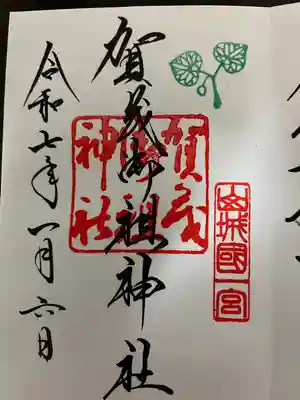 山城國一宮
賀茂御祖神社
賀茂
神社
令和七年一月六日